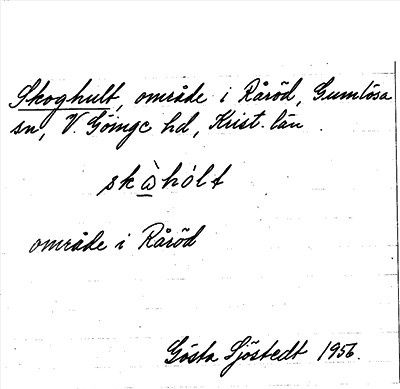 Skoghult, område i Råröd, Gumlösa
sn, V. Göinge hd, Krist. län.
skàhólt
område i Råröd
Gösta Sjöstedt 1956.